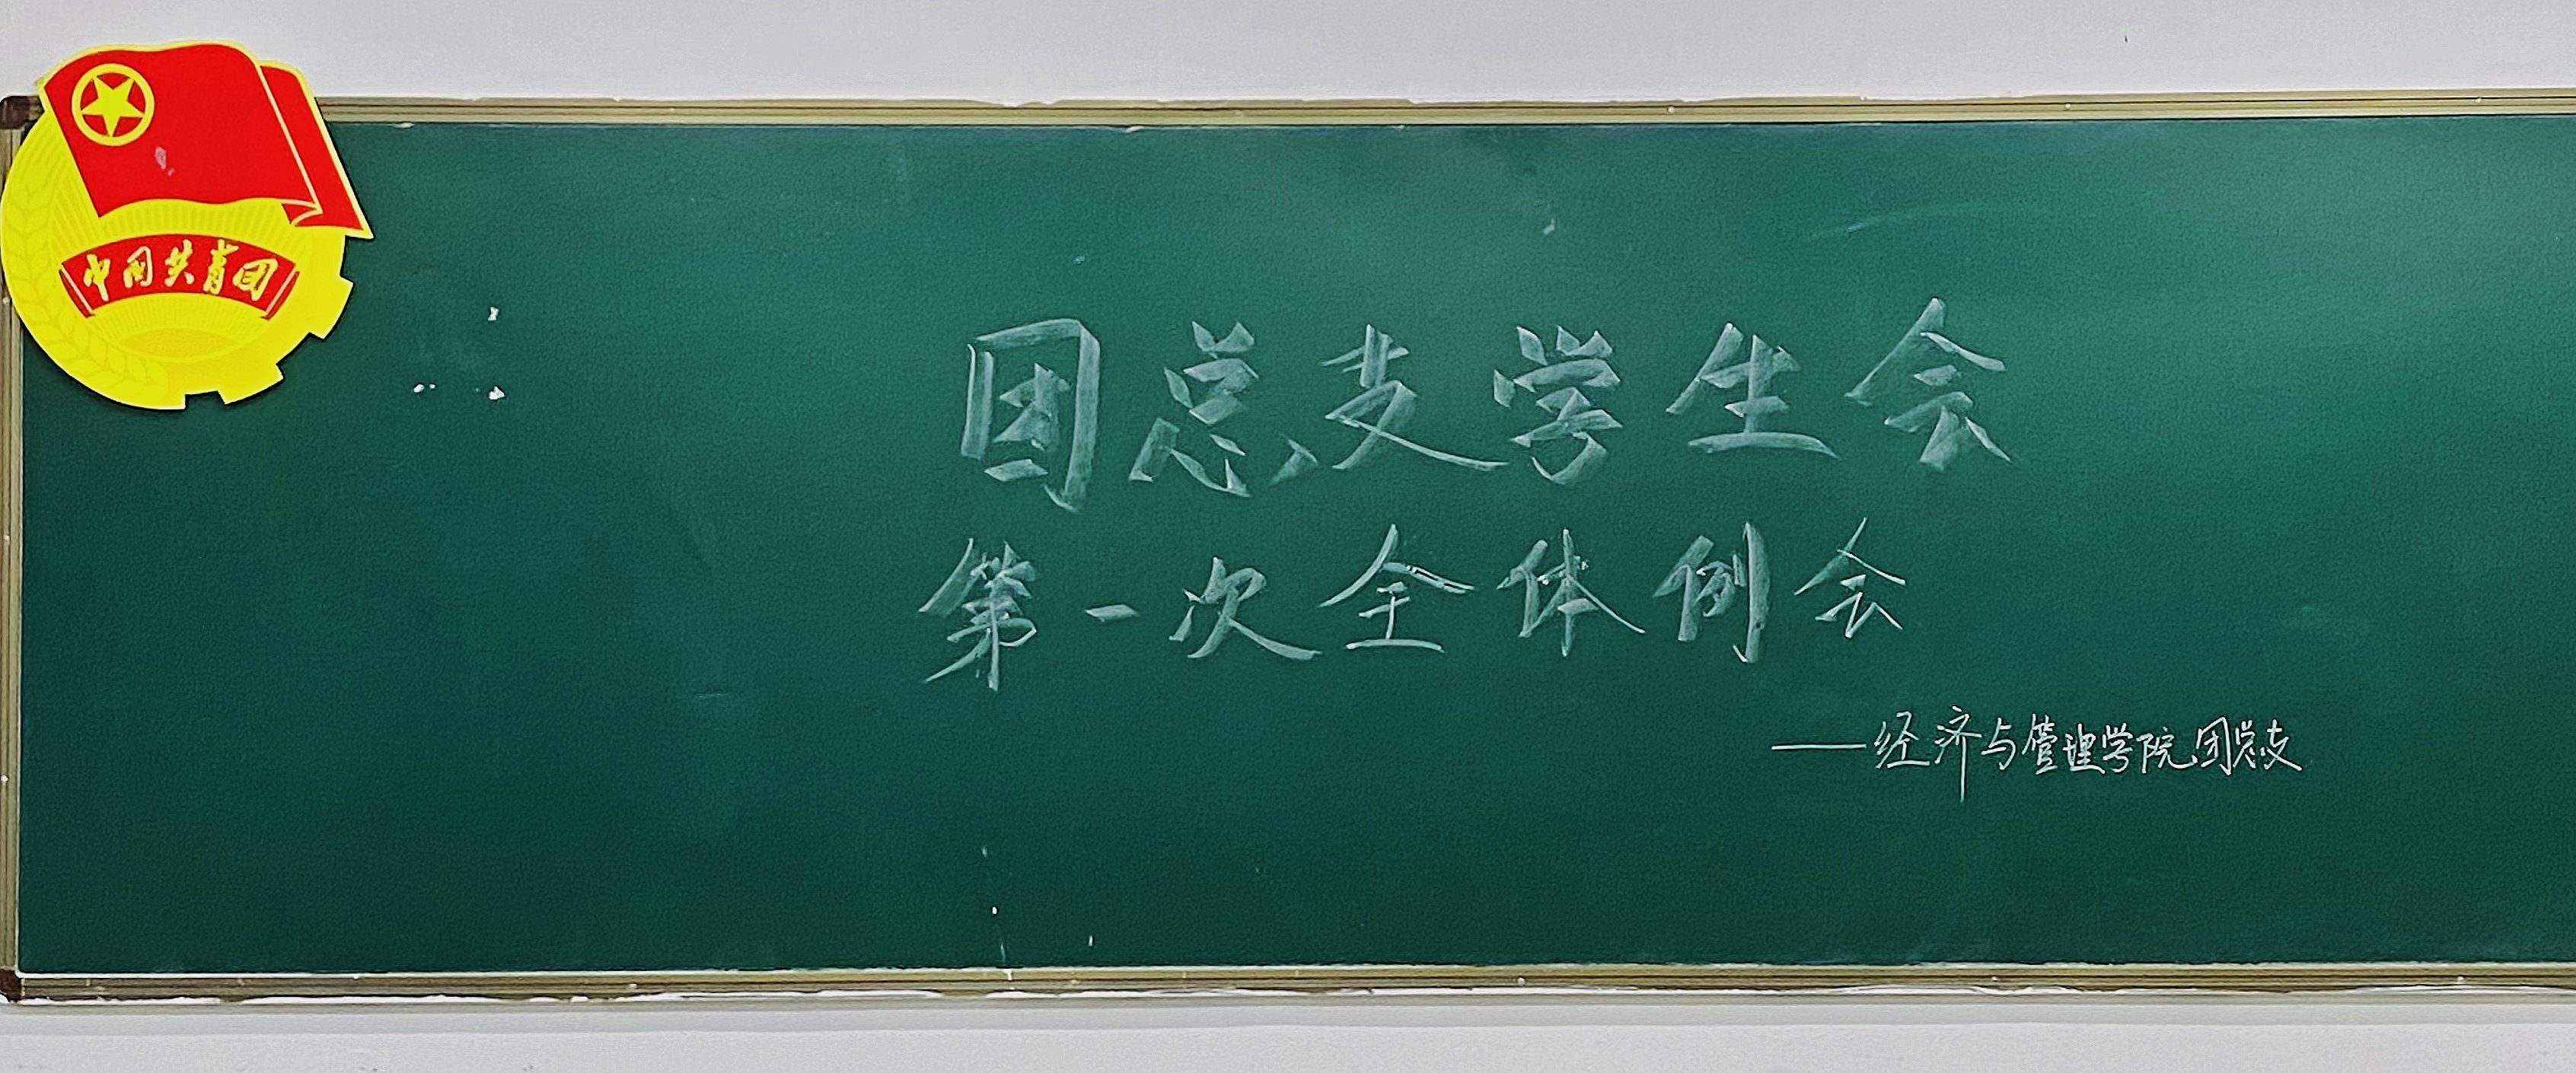 中国共青团
团总支学生会
第一次全体例会
——经济与管理学院团总支